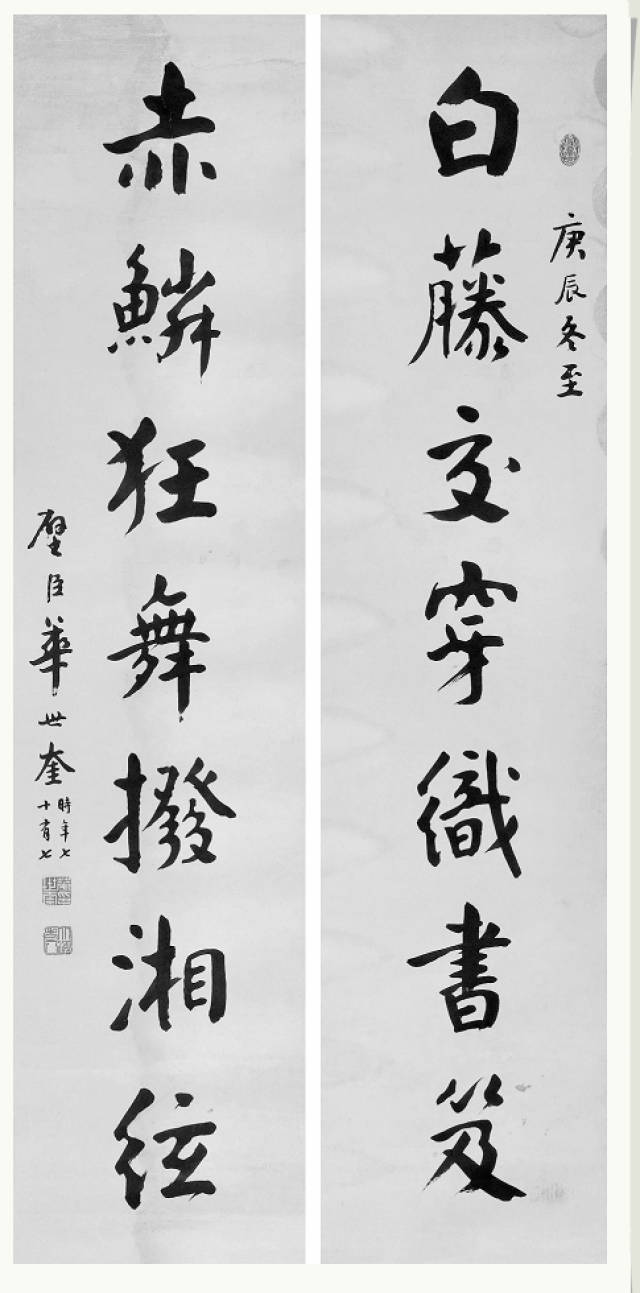 庚辰冬至
白藤交穿織書笈
赤鱗狂舞撥湘絃
璧臣華世奎
時年七
十有七